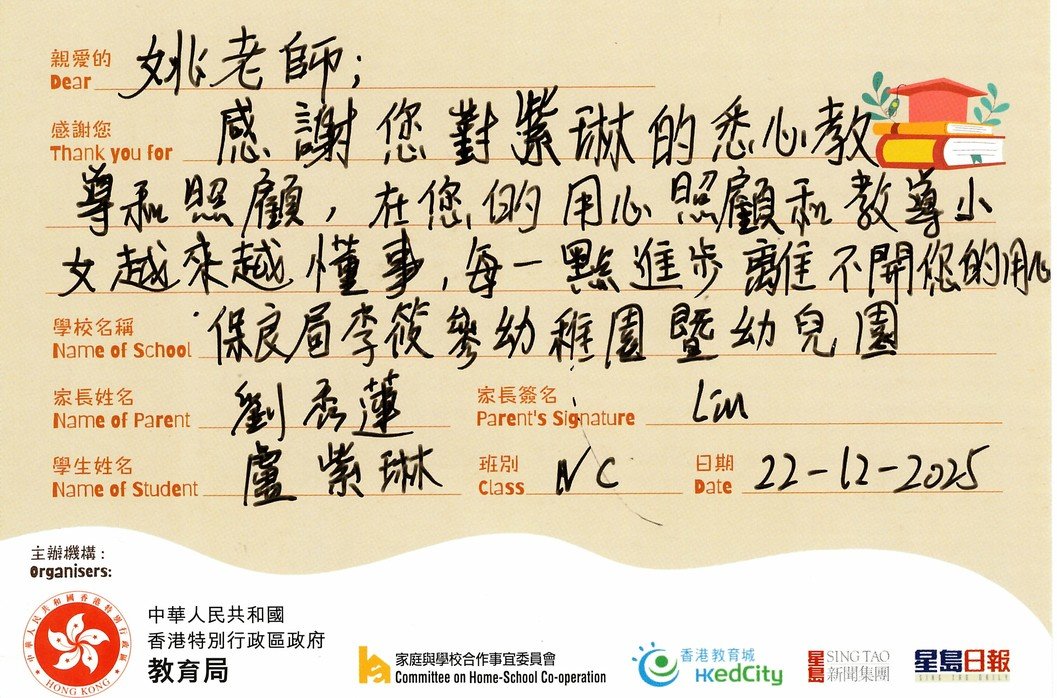 親愛的 姚老師;
Dear
感謝您 感謝您對紫琳的悉心教
Thank you for
導和照顧，在您的用心照顧和教導小
女越來越懂事，每一點進步離不開您的用心
學校名稱 保良局李筱參幼稚園暨幼兒園
Name of School
家長姓名 劉秀蓮 家長簽名 Liu
Name of Parent Parent's Signature
學生姓名 盧紫琳 班別 NC 日期 22-12-2025
Name of Student Class Date
主辦機構：
Organisers:
中華人民共和國香港特別行政區政府
HONG KONG
中華人民共和國
香港特別行政區政府
教育局
家庭與學校合作事宜委員會
Committee on Home-School Co-operation
香港教育城
HKedCity
星島 SING TAO
新聞集團
星島日報
SING TAO DAILY